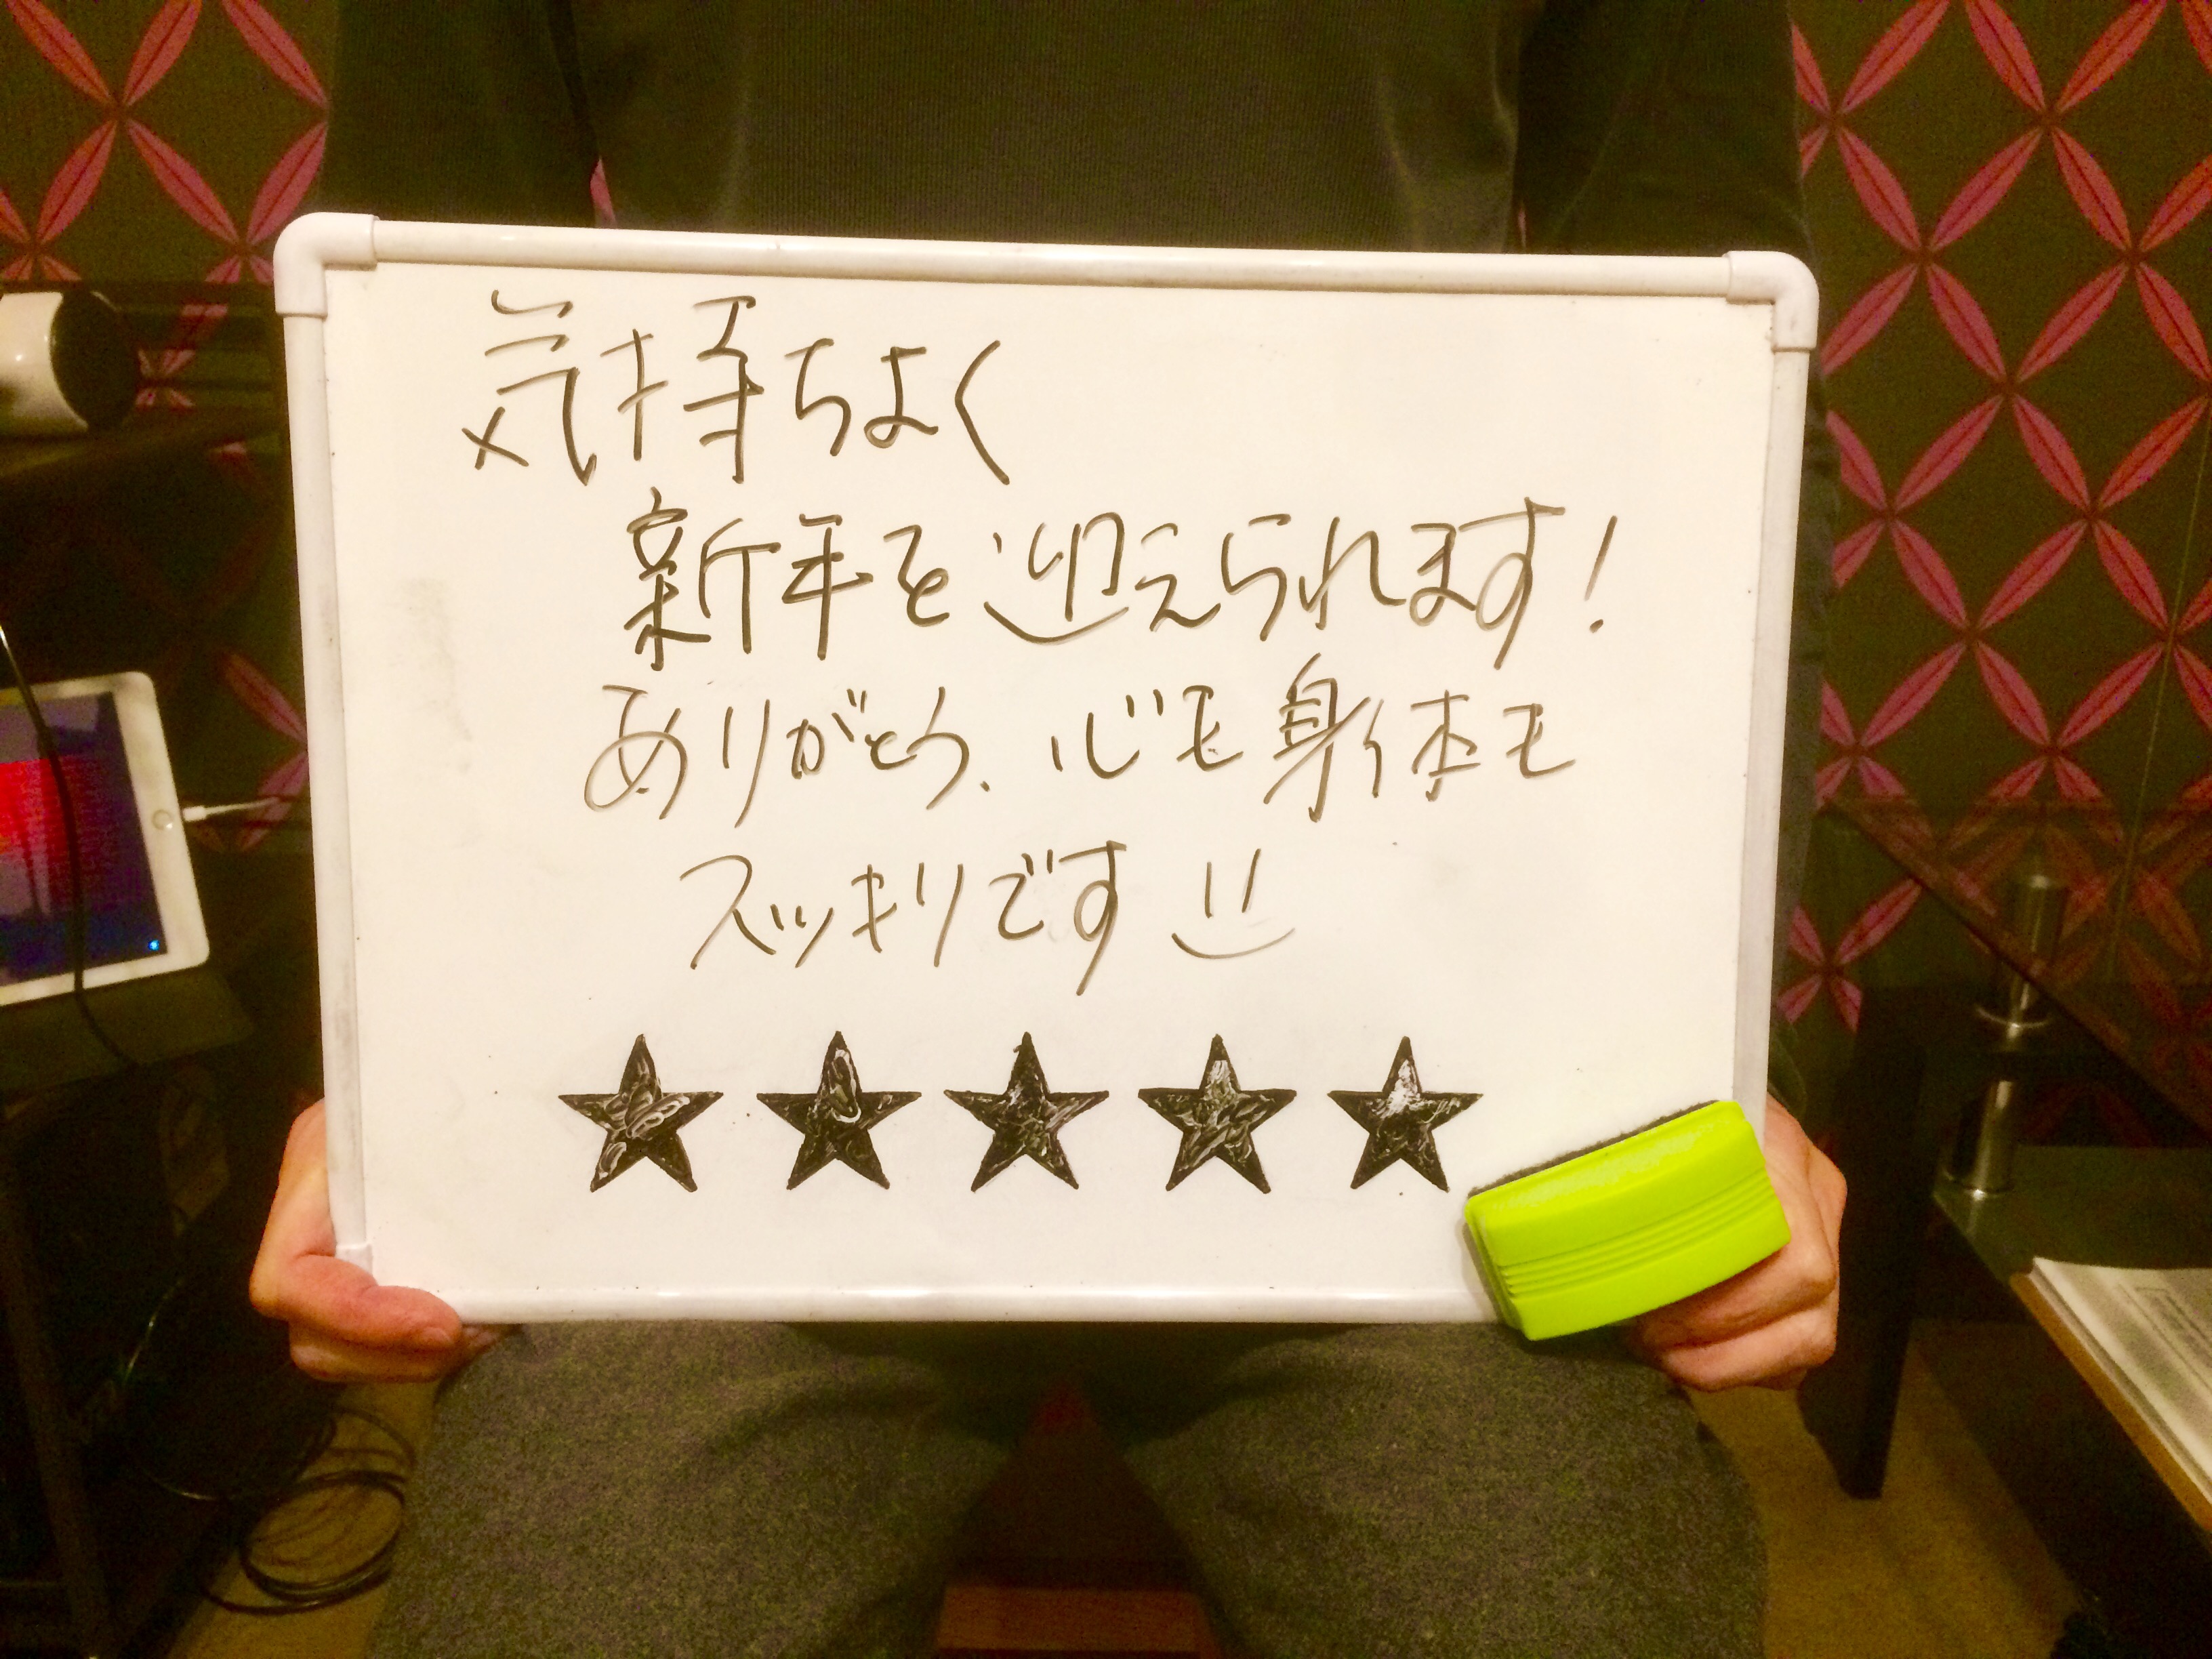 気持ちよく
新年を迎えられます!
ありがとう、心も身体も
スッキリです